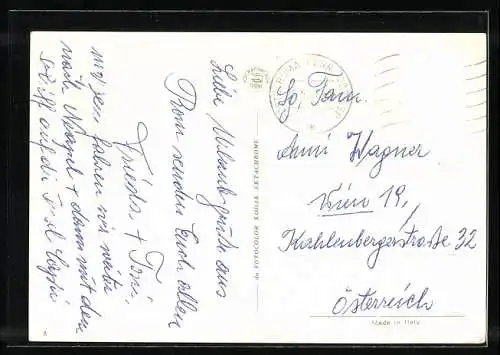 Liebe Urlaubsgrüße aus
Rom senden Euch allen
Frieda + Toni.
morgen fahren wir weiter
nach Neapel + dann mit dem
Schiff auf die Insel Capri
da FOTOCOLOR KODAK EKTACHROME
ROMA FERR
Fam.
Anni Wagner
Wien 19,
Kahlenbergerstraße 32
Österreich
Made in Italy